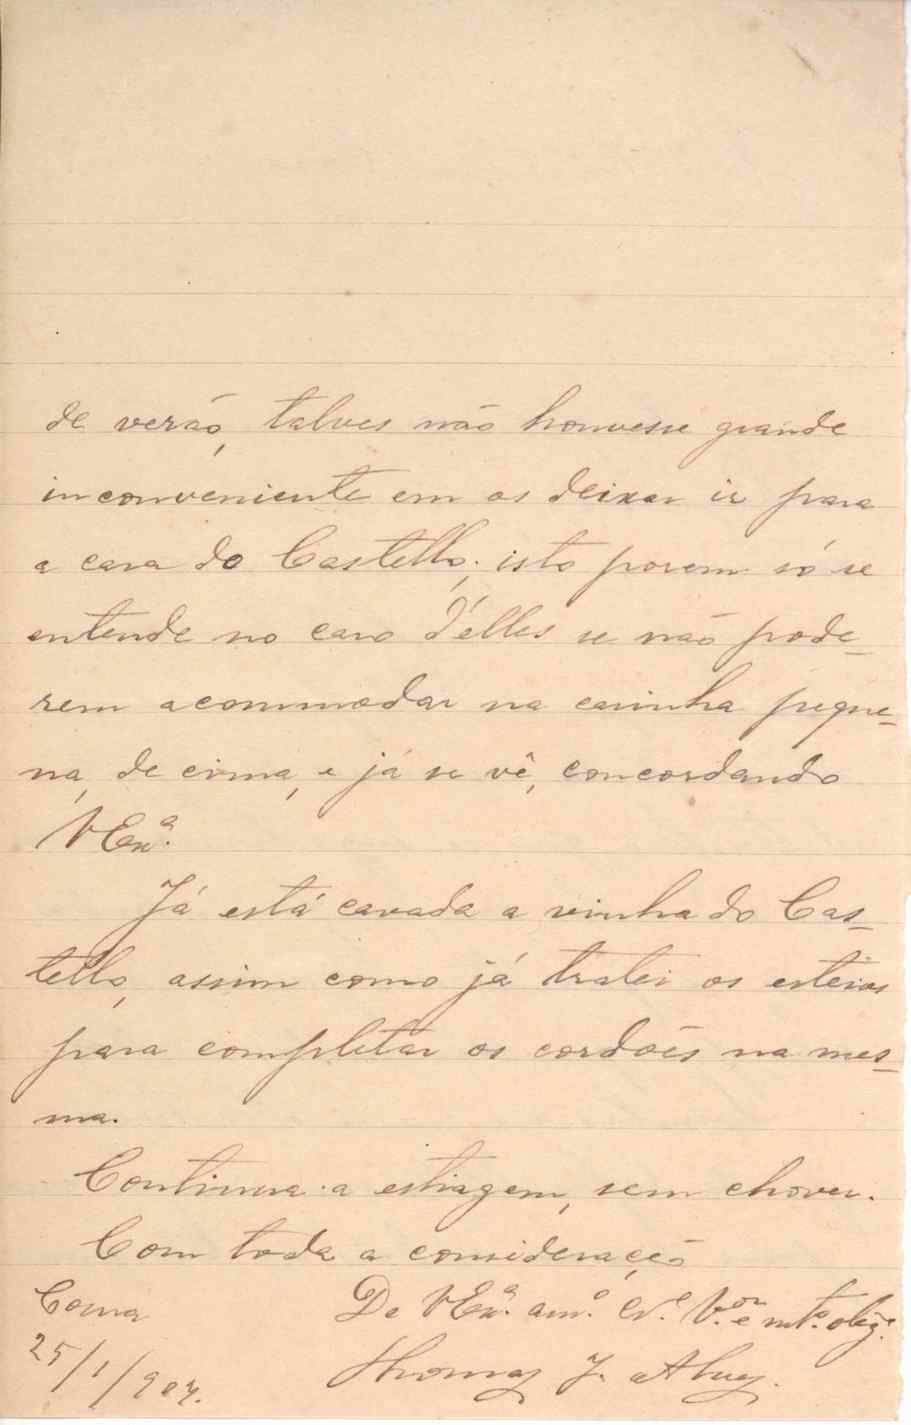 de verão, talves não houvesse grande
inconveniente em os deixar ir para
a casa do Castello; isto porem só se
entende no caso d'elles se não pode-
rem acommodar na casinha peque-
na, de cima, e já se vê, concordando
V Ex.ª
Já está cavada a vinha do Cas-
tello, assim como já tratei os esteios
para completar os cordões na mes-
ma.
Continua a estiagem, sem chover.
Com toda a consideração
De V Ex.ª am.º e mt.º obrg.
25/1/907.
Thomaz J.